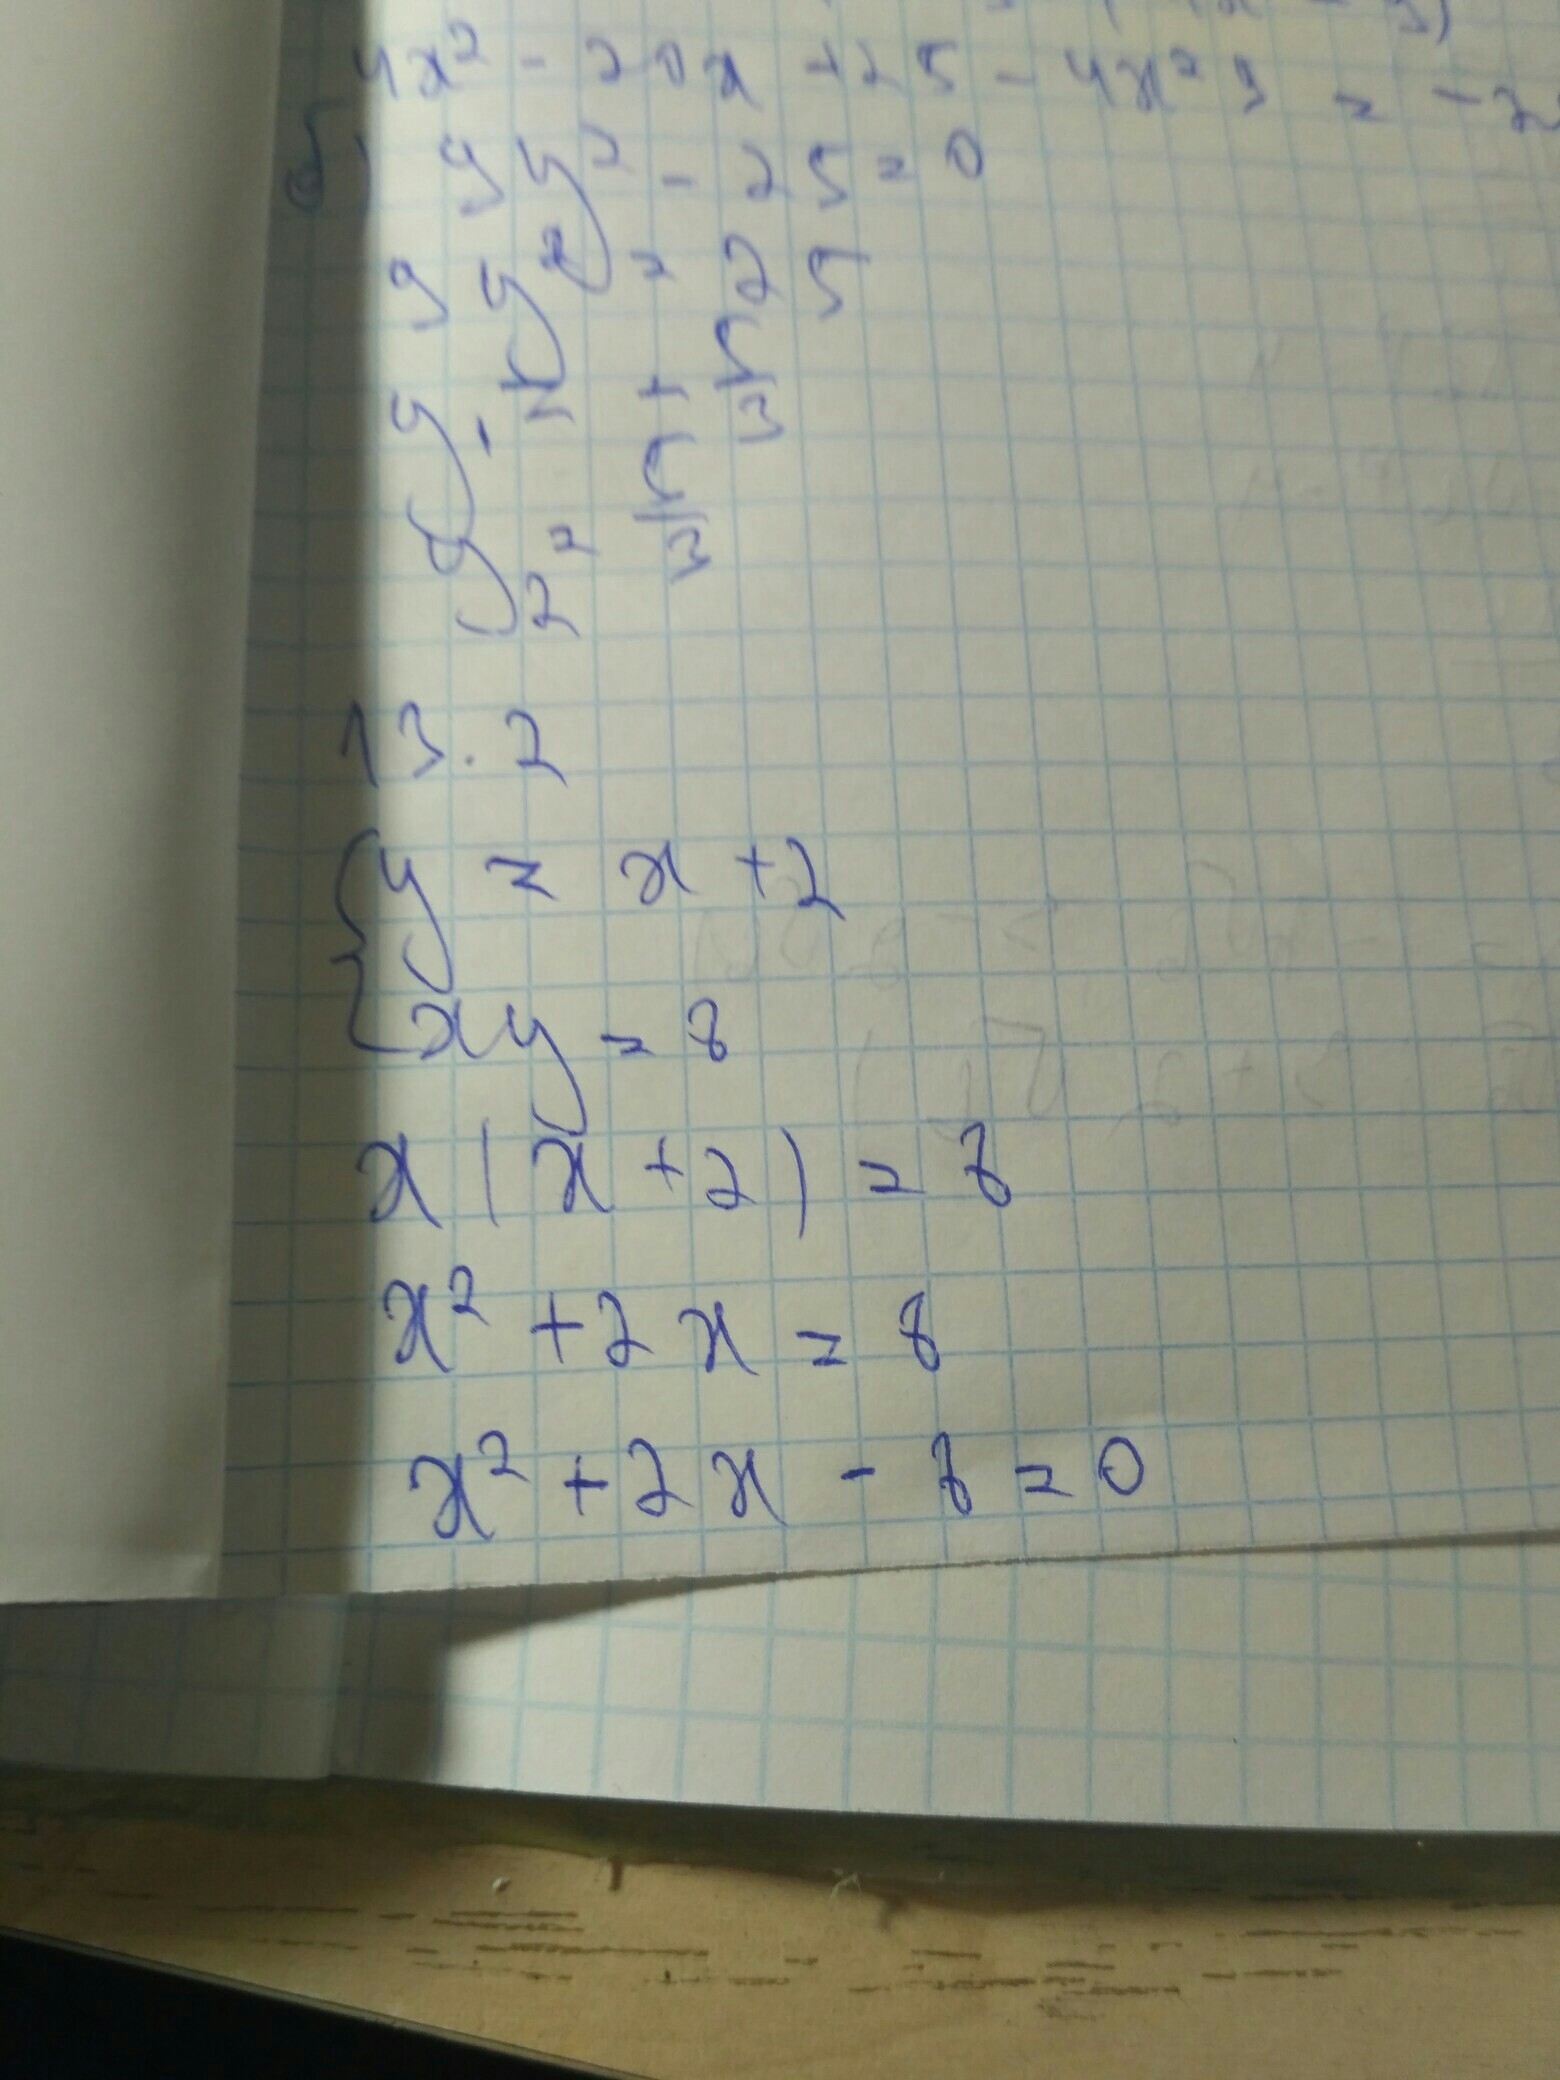 4x² - 20x + 25 - 4x² 9 = -2
б) 9y² - 25 = 0
9y² = 25
y₁ = - 5/3
y₂ = 5/3
13.2
{ y = x + 2
xy = 8
x(x + 2) = 8
x² + 2x = 8
x² + 2x - 8 = 0